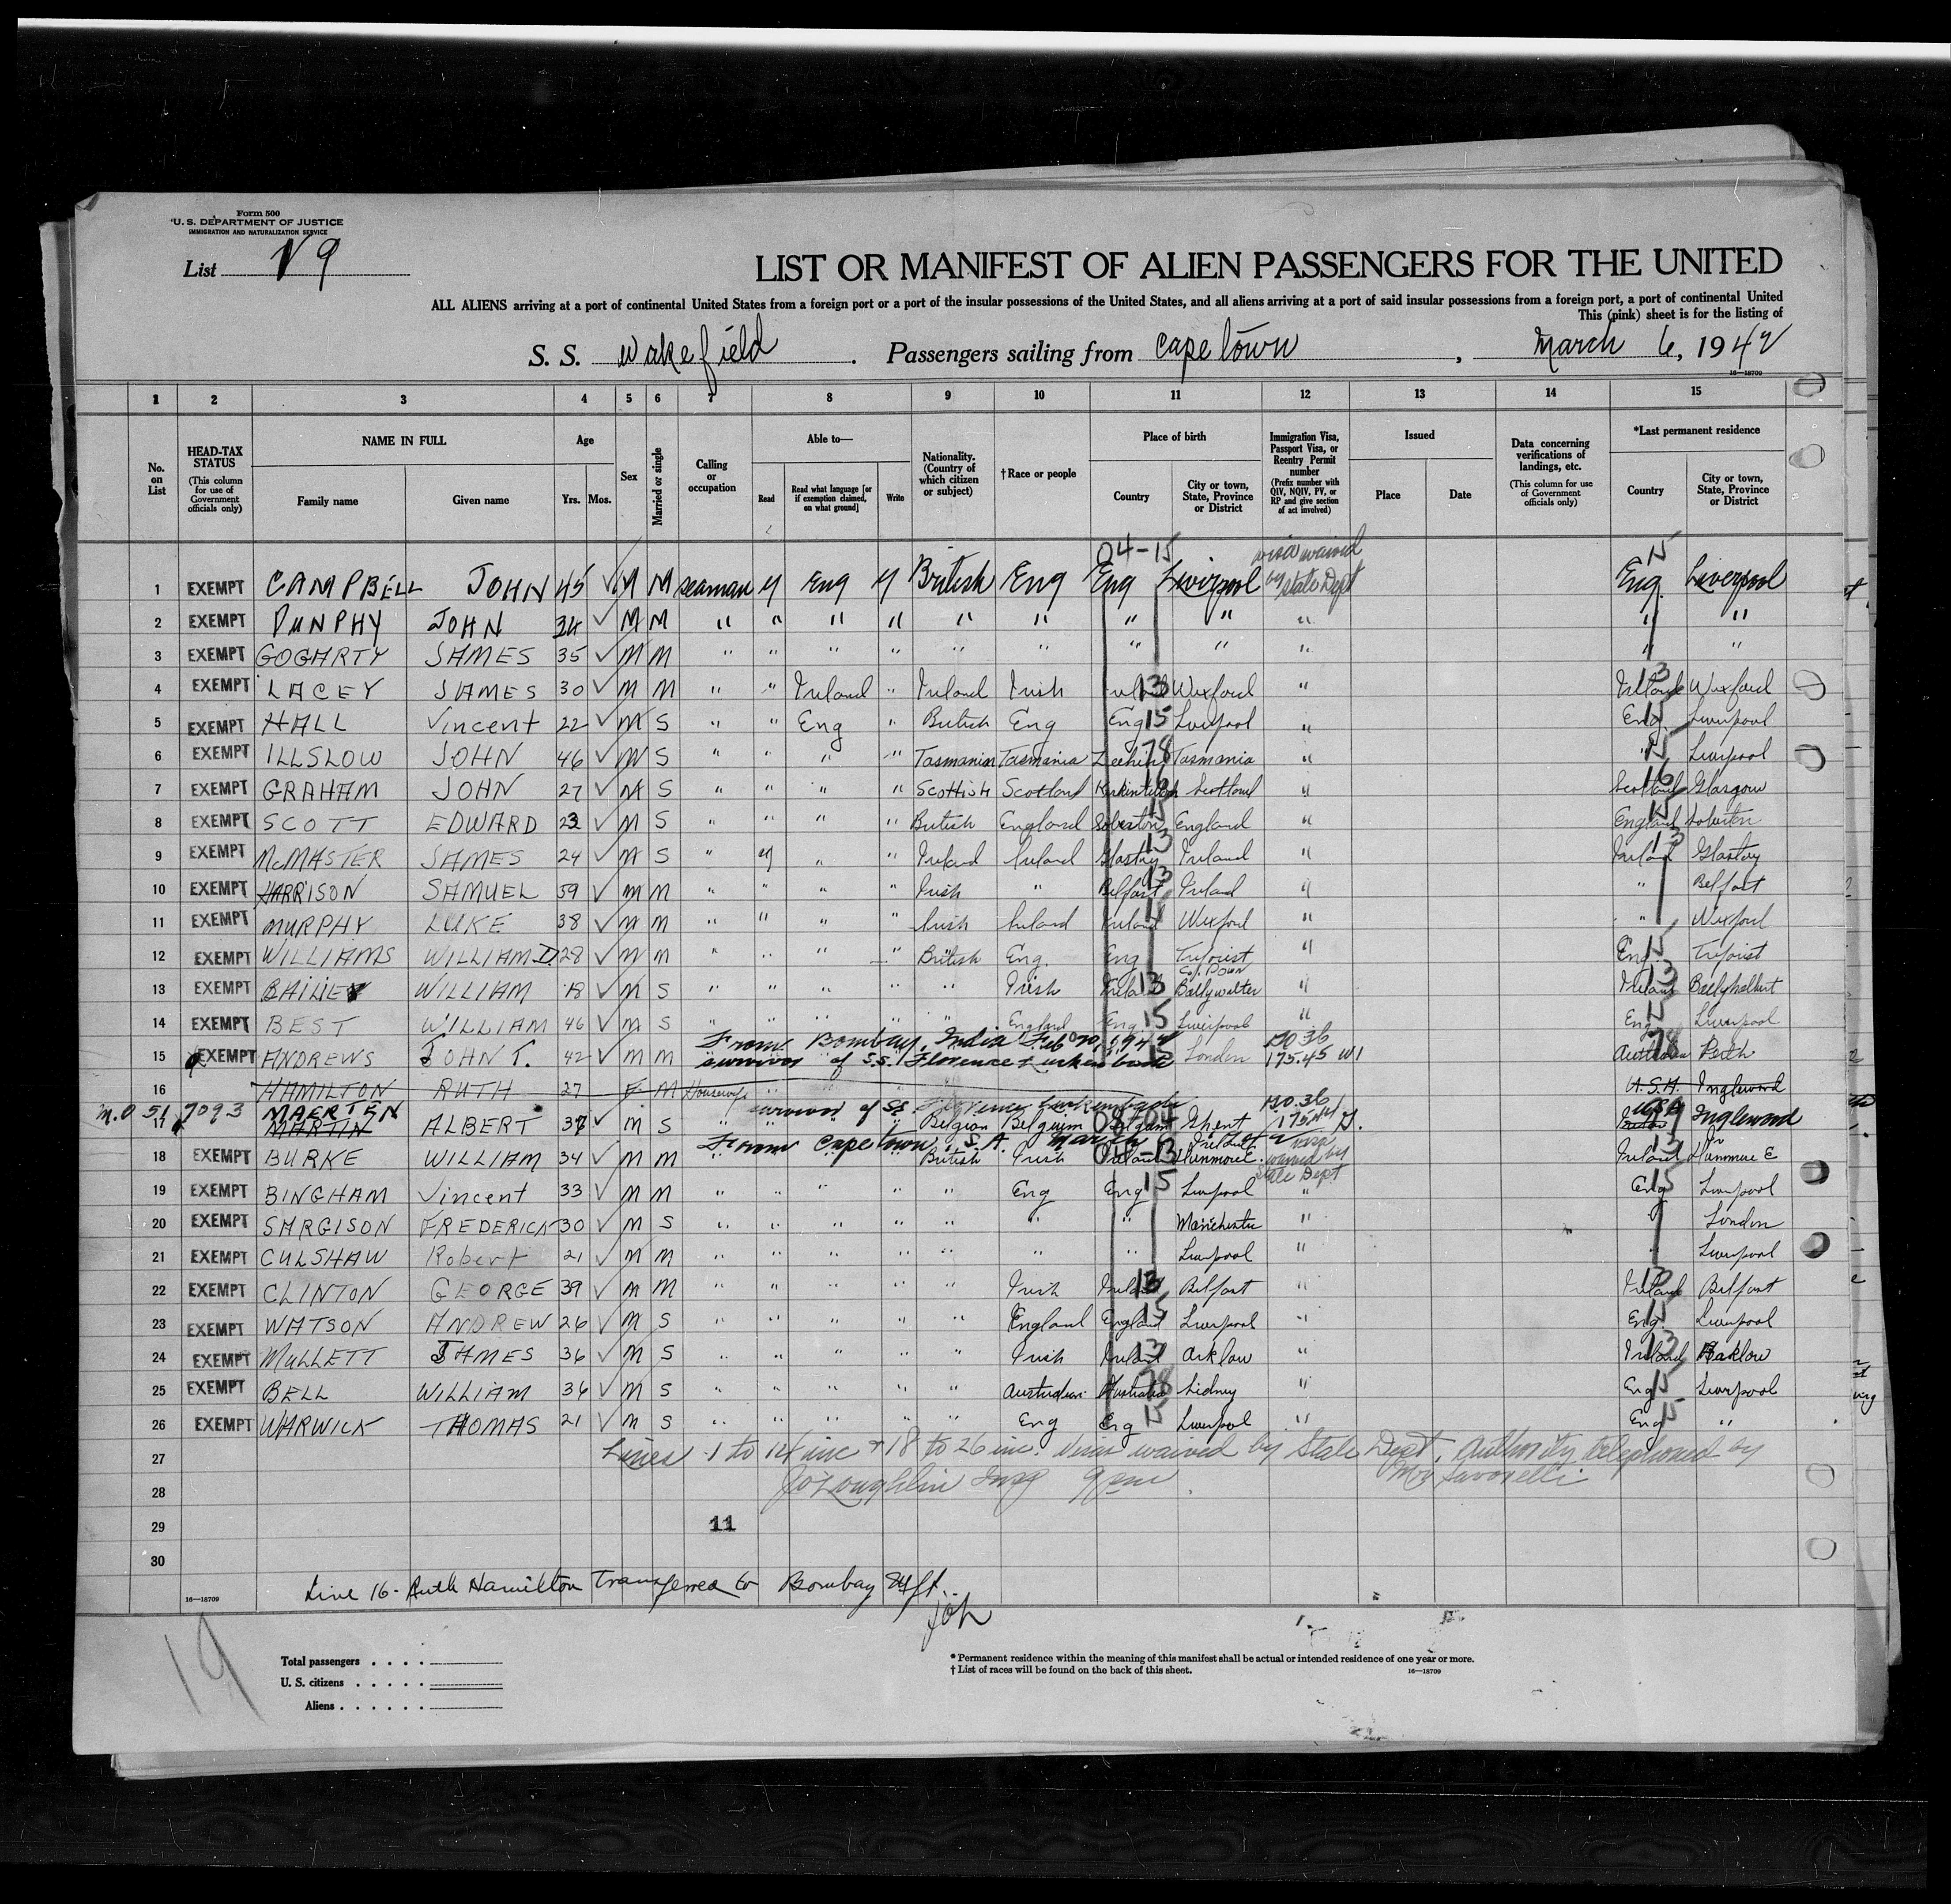 Form 500
U. S. DEPARTMENT OF JUSTICE
IMMIGRATION AND NATURALIZATION SERVICE
List V9
LIST OR MANIFEST OF ALIEN PASSENGERS FOR THE UNITED
ALL ALIENS arriving at a port of continental United States from a foreign port or a port of the insular possessions of the United States, and all aliens arriving at a port of said insular possessions from a foreign port, a port of continental United
This (pink) sheet is for the listing of
S. S. Wakefield . Passengers sailing from Cape town , March 6, 1942
16—18709
1 2 3 4 5 6 7 8 9 10 11 12 13 14 15
No. on List
HEAD-TAX STATUS (This column for use of Government officials only)
NAME IN FULL
Family name Given name
Age
Yrs. Mos.
Sex
Married or single
Calling or occupation
Able to—
Read Read what language [or if exemption claimed, on what ground] Write
Nationality. (Country of which citizen or subject)
†Race or people
Place of birth
Country City or town, State, Province or District
Immigration Visa, Passport Visa, or Reentry Permit number (Prefix number with QIV, NQIV, PV, or RP and give section of act involved)
Issued
Place Date
Data concerning verifications of landings, etc. (This column for use of Government officials only)
*Last permanent residence
Country City or town, State, Province or District
04-15 visa waived 15
1 EXEMPT CAMPBELL JOHN 45 ✓ M M seaman y Eng y British Eng Eng Liverpool by State Dept Eng Liverpool
2 EXEMPT DUNPHY JOHN 34 ✓ M M " " " " " " " " " " "
3 EXEMPT GOGARTY JAMES 35 ✓ M M " " " " " " " " " " "
4 EXEMPT LACEY JAMES 30 ✓ M M " " Ireland " Ireland Irish Ireland 13 Wexford " Ireland 13 Wexford
5 EXEMPT HALL Vincent 22 ✓ M S " " Eng " British Eng Eng 15 Liverpool " Eng 15 Liverpool
6 EXEMPT ILLSLOW JOHN 46 ✓ M S " " " " Tasmanian Tasmania Zeehan 78 Tasmania " " 15 Liverpool
7 EXEMPT GRAHAM JOHN 27 ✓ M S " " " " Scottish Scotland Kirkintilloch 16 Scotland " Scotland 16 Glasgow
8 EXEMPT SCOTT EDWARD 23 ✓ M S " " " " British England Soberton 15 England " England 15 Soberton
9 EXEMPT McMASTER JAMES 24 ✓ M S " y " " Ireland Ireland Glastry 13 Ireland " Ireland 13 Glastry
10 EXEMPT HARRISON SAMUEL 59 ✓ M M " " " " Irish " Belfast 13 Ireland " " Belfast
11 EXEMPT MURPHY LUKE 38 ✓ M M " " " " Irish Ireland Ireland Wexford " " Wexford
12 EXEMPT WILLIAMS WILLIAM D. 28 ✓ M M " " " " British Eng Eng " Eng. 15
13 EXEMPT BAILIEY WILLIAM 18 ✓ M S " " " " " Irish Irela 13 Co. Down Ballywalter " Ireland 13 Ballyhalbert
14 EXEMPT BEST WILLIAM 46 ✓ M S " " " " " England Eng 15 Liverpool " Eng 15 Liverpool
From Bombay, India Feb 20, 1942
15 EXEMPT ANDREWS JOHN T. 42 ✓ M M survivor of S.S. Florence Luckenbach London 1754S W1 Australia 78 Perth
16 HAMILTON RUTH 27 F M Housewife " U.S.A. Inglewood
survivor of SS Florence Luckenbach
M.O 51 7093 MAERTEN
17 MARTIN ALBERT 37 ✓ M S " " " " Belgian Belgium Belgium Ghent USA Inglewood
From Cape town, S.A. March 6
18 EXEMPT BURKE WILLIAM 34 ✓ M M British Irish Ireland 04-13 Dunmore E. visa waived by State Dept Ireland 13 Dunmore E
19 EXEMPT BINGHAM Vincent 33 ✓ M M " " " " " Eng Eng 15 Liverpool " Eng 15 Liverpool
20 EXEMPT SARGISON FREDERICK 30 ✓ M S " " " " " " " Manchester " " London
21 EXEMPT CULSHAW Robert 21 ✓ M M " " " " " " " Liverpool " " Liverpool
22 EXEMPT CLINTON GEORGE 39 ✓ M M " " " " " Irish Ireland 13 Belfast " Ireland 13 Belfast
23 EXEMPT WATSON ANDREW 26 ✓ M S " " " " " England England 15 Liverpool " Eng 15 Liverpool
24 EXEMPT MULLETT JAMES 36 ✓ M S " " " " " Irish Ireland 13 Arklow " Ireland 13 Arklow
25 EXEMPT BELL WILLIAM 36 ✓ M S " " " " " Australian Australia 78 Sidney " Eng 15 Liverpool
26 EXEMPT WARWICK THOMAS 21 ✓ M S " " " " " Eng Eng 15 Liverpool " Eng 15 "
27 Lines 1 to 14 inc + 18 to 26 inc. visas waived by State Dept. Authority telephoned by
28 J O'Loughlin Insp 9 pm. Mr Savorelli
29 11
30
Line 16 - Ruth Hamilton Transferred to Bombay
JOL
16—18709
19
Total passengers . . . .
U. S. citizens . . . . . .
Aliens . . . . . .
* Permanent residence within the meaning of this manifest shall be actual or intended residence of one year or more.
† List of races will be found on the back of this sheet.
16—18709